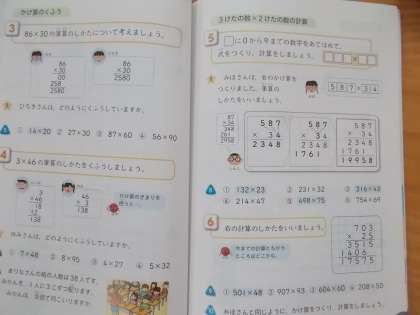 かけ算のくふう
3
86×30の筆算のしかたについて考えましょう。
86
×30
00
258
2580
86
×30
2580
ひろきさんは、どのようにくふうしていますか。
① 14×20 ② 27×30 ③ 87×60 ④ 56×90
4
3×46の筆算のしかたをくふうしましょう。
3
×46
18
12
138
46
× 3
138
かけ算のきまりを
使うと…。
ゆみさんは、どのようにくふうしていますか。
① 7×48 ② 8×95 ③ 4×27 ④ 5×32
3けたの数×2けたの数の計算
5
□に0から9までの数字をあてはめて、
式をつくり、計算をしましょう。
みほさんは、右のかけ算を
つくりました。筆算の
しかたをいいましょう。
587×34
87
×34
348
261
2958
587
× 34
2348
587
× 34
2348
1761
587
× 34
2348
1761
19958
① 132×23 ② 231×32 ③ 316×43
④ 214×48 ⑤ 498×75 ⑥ 754×69
6
右の計算のしかたをいいましょう。
703
× 25
3515
1406
17575
今までの計算とちがう
ところはどこかな。
① 501×48 ② 907×93 ③ 604×60 ④ 208×50
みほさんと同じように、かけ算をつくり、計算をしましょう。